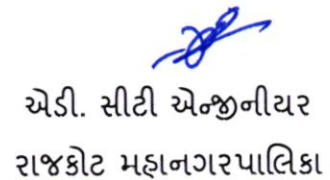 એડી. સીટી એન્જીનીયર
રાજકોટ મહાનગરપાલિકા